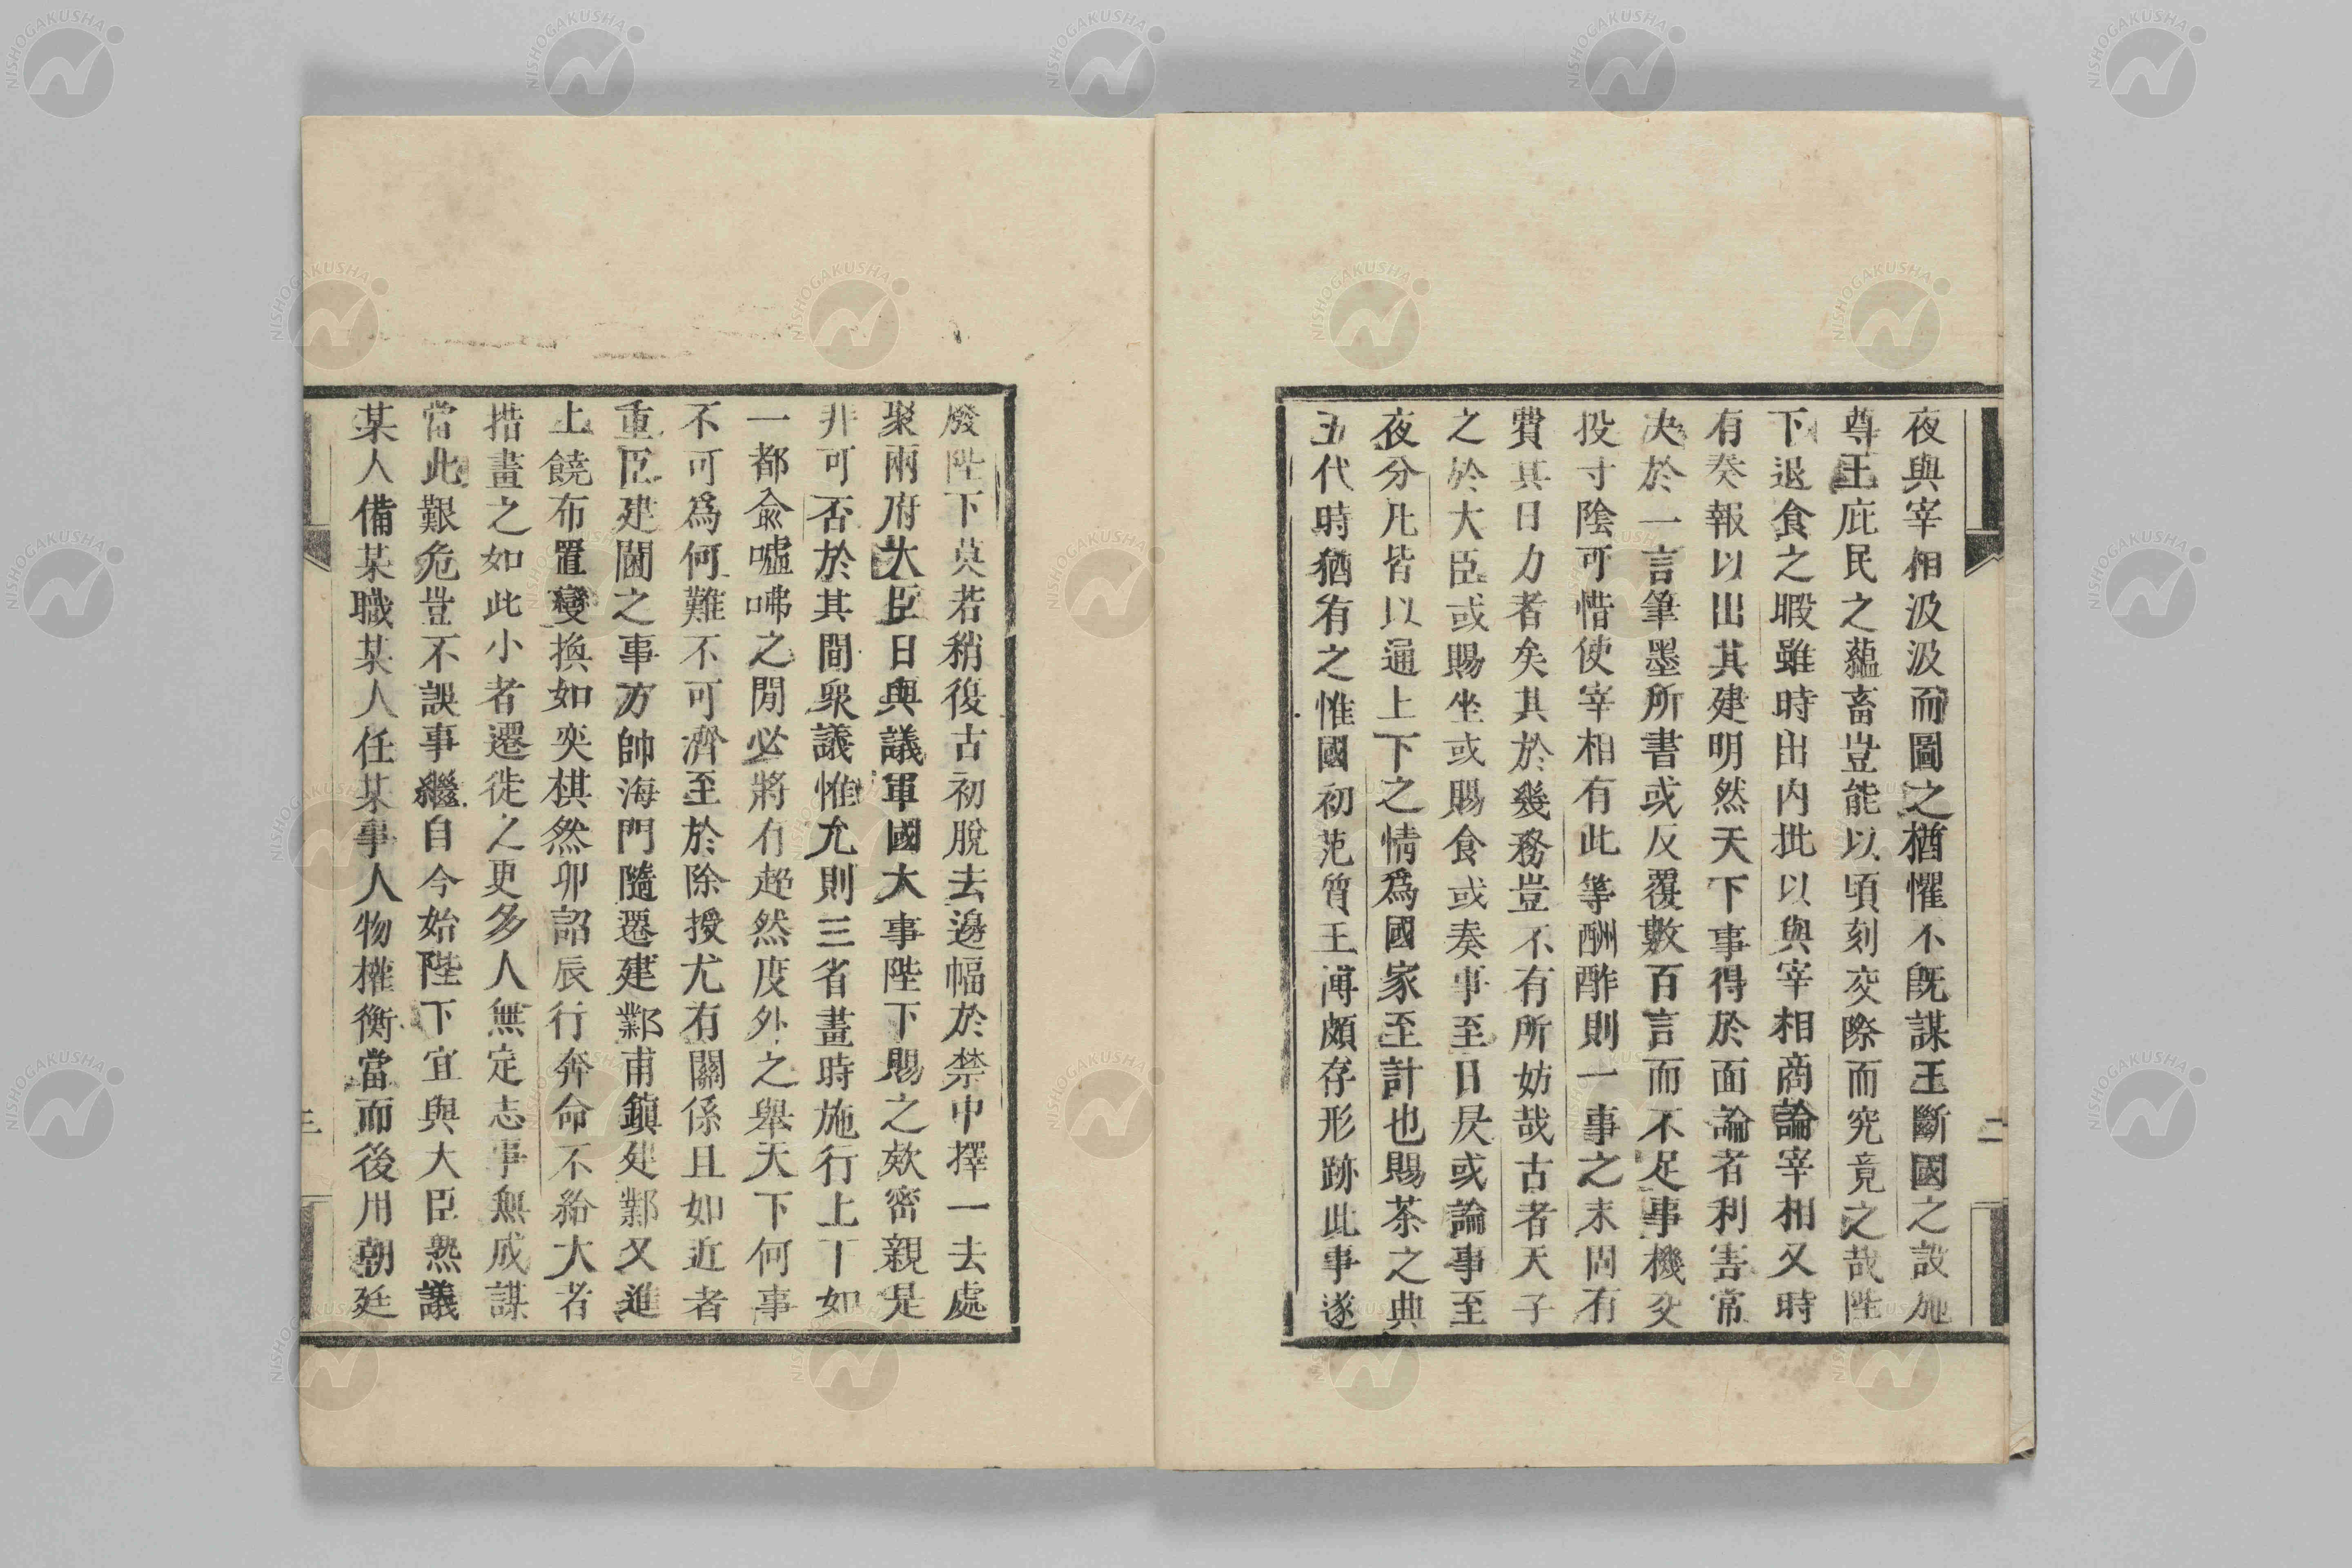 夜與宰相汲汲而圖之猶懼不旣謀王斷國之設施
尊主庇民之蘊畜豈能以頃刻交際而究竟之哉陛
下退食之暇雖時由內批以與宰相商論宰相又時
有奏報以出其建明然天下事得於面論者利害常
决於一言筆墨所書或反覆數百言而不足事機交
投寸陰可惜使宰相有此等酬酢則一事之末問有
費其日力者矣其於幾務豈不有所妨哉古者天子
之於大臣或賜坐或賜食或奏事至日昃或論事至
夜分凡皆以通上下之情爲國家至計也賜茶之典
五代時猶有之惟國初范質王溥頗存形跡此事遂
二
廢陛下莫若稍復古初脫去邊幅於禁中擇一去處
聚兩府大臣日與議軍國大事陛下賜之欵密親是
非可否於其間衆議惟允則三省畫時施行上下如
一都兪噓咈之間必將有超然度外之舉天下何事
不可爲何難不可濟至於除授尤有關係且如近者
重臣建閫之事方帥海門隨遷建鄴甫鎭建鄴又進
上饒布置變換如奕棋然卯詔辰行奔命不給大者
措畫之如此小者遷徙之更多人無定志事無成謀
當此艱危豈不誤事繼自今始陛下宜與大臣熟議
某人備某職某人任某事人物權衡當而後用朝廷
三
NISHOGAKUSHA